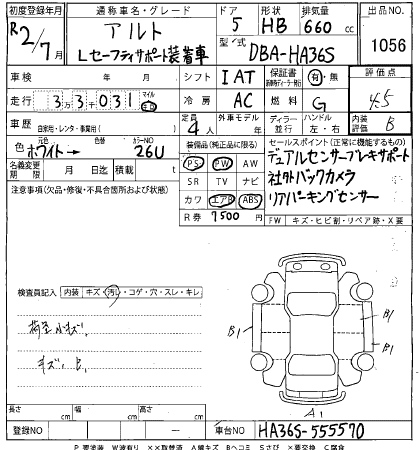 初度登録年月 通称車名・グレード ドア 形状 排気量 出品NO
R2/7月 アルト 5 HB 660 cc 1056
Lセーフティサポート装着車 型式 DBA-HA36S
車検 年 月 シフト IAT 保証書 有・無 評価点
走行 33031 冷房 AC 燃料 G 4.5
車歴 自家用・レンタ・事業用( ) 定員 4人 外車モデル 年 ディーラー 並行 ハンドル 左・右 内装 B
色 元色 ホワイト→ カラーNO 26U 装備品(純正品に限る) セールスポイント(正常に機能するもの)
名義変更期限 月 日迄 積載量 t PS PW AW デュアルセンサーブレーキサポート
注意事項(欠品・修復・不具合箇所および状態) SR TV ナビ 社外バックカメラ
カワ エアB ABS リアパーキングセンサー
R券 7500 FW キズ・ヒビ割・リペア跡・X要
検査員記入 内装 キズ・汚レ・コゲ・穴・スレ・キレ
荷室小キズ、
キズ、B、
B1
B1
B1
A1
長さ cm 幅 cm 高さ cm
登録NO 車台NO HA36S-555570
P要塗装 W波有り XX取替済 A線キズ Bヘコミ Sさび X要交換 C腐食